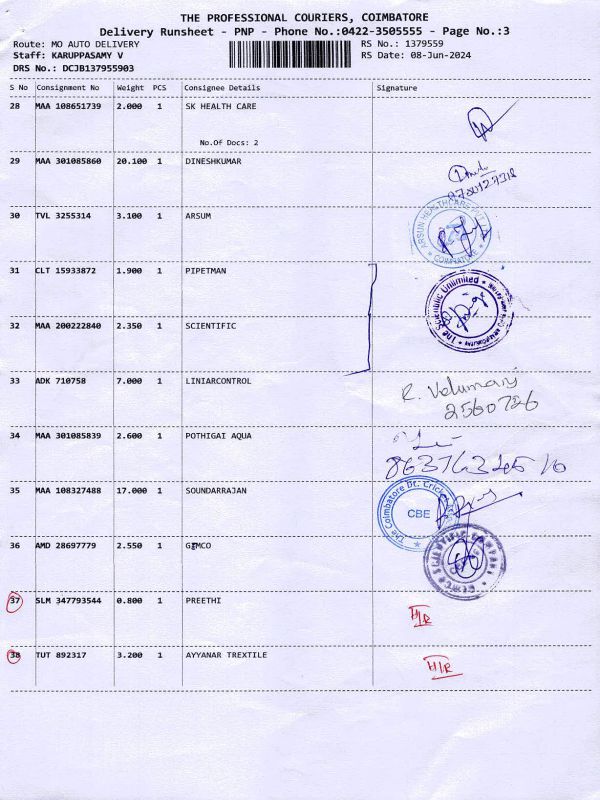 THE PROFESSIONAL COURIERS, COIMBATORE
Delivery Runsheet - PNP - Phone No.:0422-3505555 - Page No.:3
Route: MO AUTO DELIVERY RS No.: 1379559
Staff: KARUPPASAMY V RS Date: 08-Jun-2024
DRS No.: DCJB137955903
S No Consignment No Weight PCS Consignee Details Signature
28 MAA 108651739 2.000 1 SK HEALTH CARE
No.Of Docs: 2
29 MAA 301085860 20.100 1 DINESHKUMAR
30 TVL 3255314 3.100 1 ARSUM
ARSUN HEALTHCARE PVT
COIMBATORE
31 CLT 15933872 1.900 1 PIPETMAN
The Scientific Unlimited
32 MAA 200222840 2.350 1 SCIENTIFIC
33 ADK 710758 7.000 1 LINIARCONTROL
R. Velumani
2560726
34 MAA 301085839 2.600 1 POTHIGAI AQUA
35 MAA 108327488 17.000 1 SOUNDARRAJAN
The Coimbatore Dt. Cricket
CBE
36 AMD 28697779 2.550 1 GIMCO
SCIENTIFIC COMPANY
37 SLM 347793544 0.800 1 PREETHI
H/R
38 TUT 892317 3.200 1 AYYANAR TREXTILE
H/R